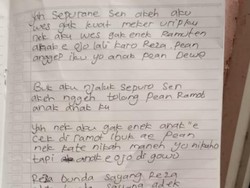 Yah Sepurane Sen akeh aku
wes gak kuat meter uripku
nek aku wes gak enek Ramuten
anak e ojo lali karo Reza. Pean
anggep iku yo anak Pean Dewe
Buk aku njaluk Sepuro Sen
akeh nggeh tolong Pean Ramot
anak anak ku
Yah nek aku gak enek anak"e
cek di ramot ibuk ae Pean
nek kate nikah maneh yo nikaho
tapi anak e ojo di gowo
Reza bunda sayang Reza
bunda sayang adek